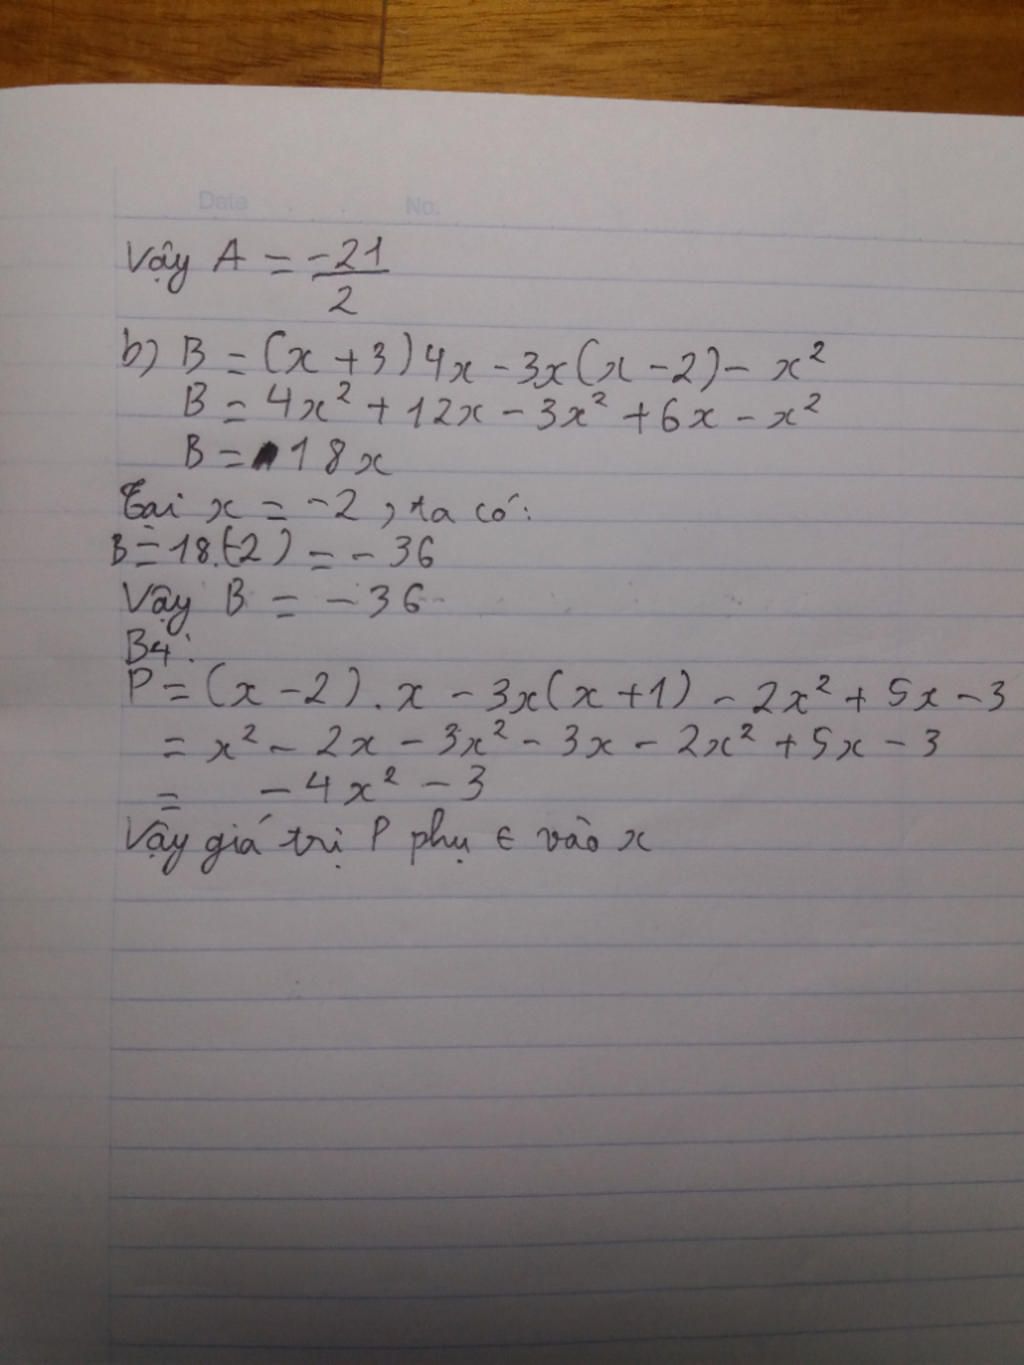 Date No.
Vậy A = -21/2
b) B = (x + 3)4x - 3x(x - 2) - x²
B = 4x² + 12x - 3x² + 6x - x²
B = 18x
Tại x = -2, ta có:
B = 18.(-2) = -36
Vậy B = -36
B4:
P = (x - 2).x - 3x(x + 1) - 2x² + 5x - 3
= x² - 2x - 3x² - 3x - 2x² + 5x - 3
= -4x² - 3
Vậy giá trị P phụ ∈ vào x